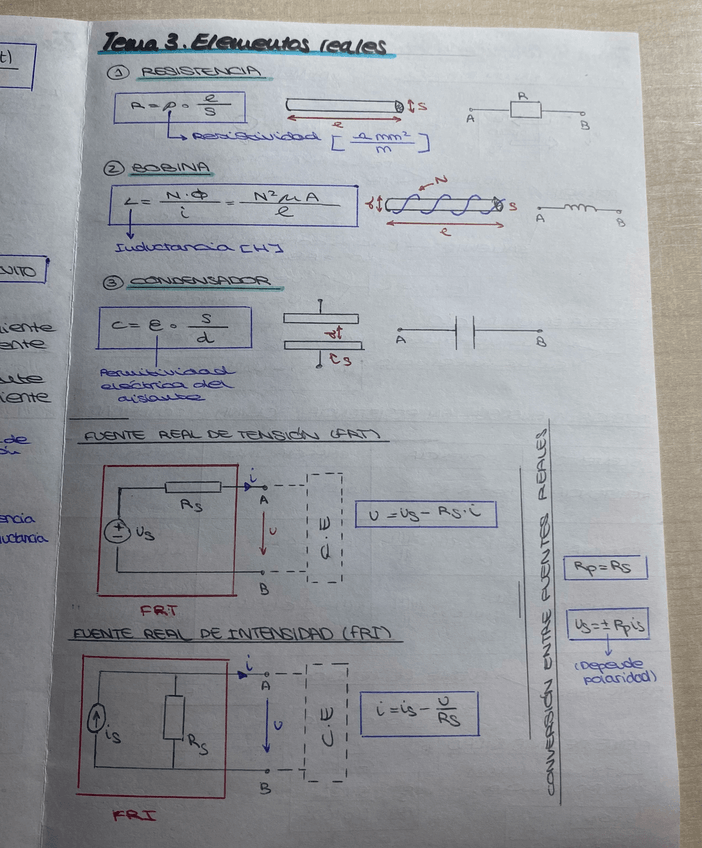 Tema 3. Elementos reales
① RESISTENCIA
R = ρ · e/S
Resistividad [Ω mm²/m]
e
S
R
A
B
② BOBINA
L = N·Φ/i = N²μA/e
Inductancia [H]
N
S
e
A
B
③ CONDENSADOR
C = e · S/d
Permitividad
eléctrica del
aislante
d
S
A
B
FUENTE REAL DE TENSIÓN (FRT)
Us
Rs
i
A
U
B
C.E
FRT
U = Us − Rs·i
FUENTE REAL DE INTENSIDAD (FRI)
is
Rs
i
A
U
B
C.E
FRI
i = is − U/Rs
CONVERSIÓN ENTRE FUENTES REALES
Rp = Rs
Us = ± Rp is
(Depende
polaridad)
t)
UITO
iente
ente
iente
de
encia
uctancia